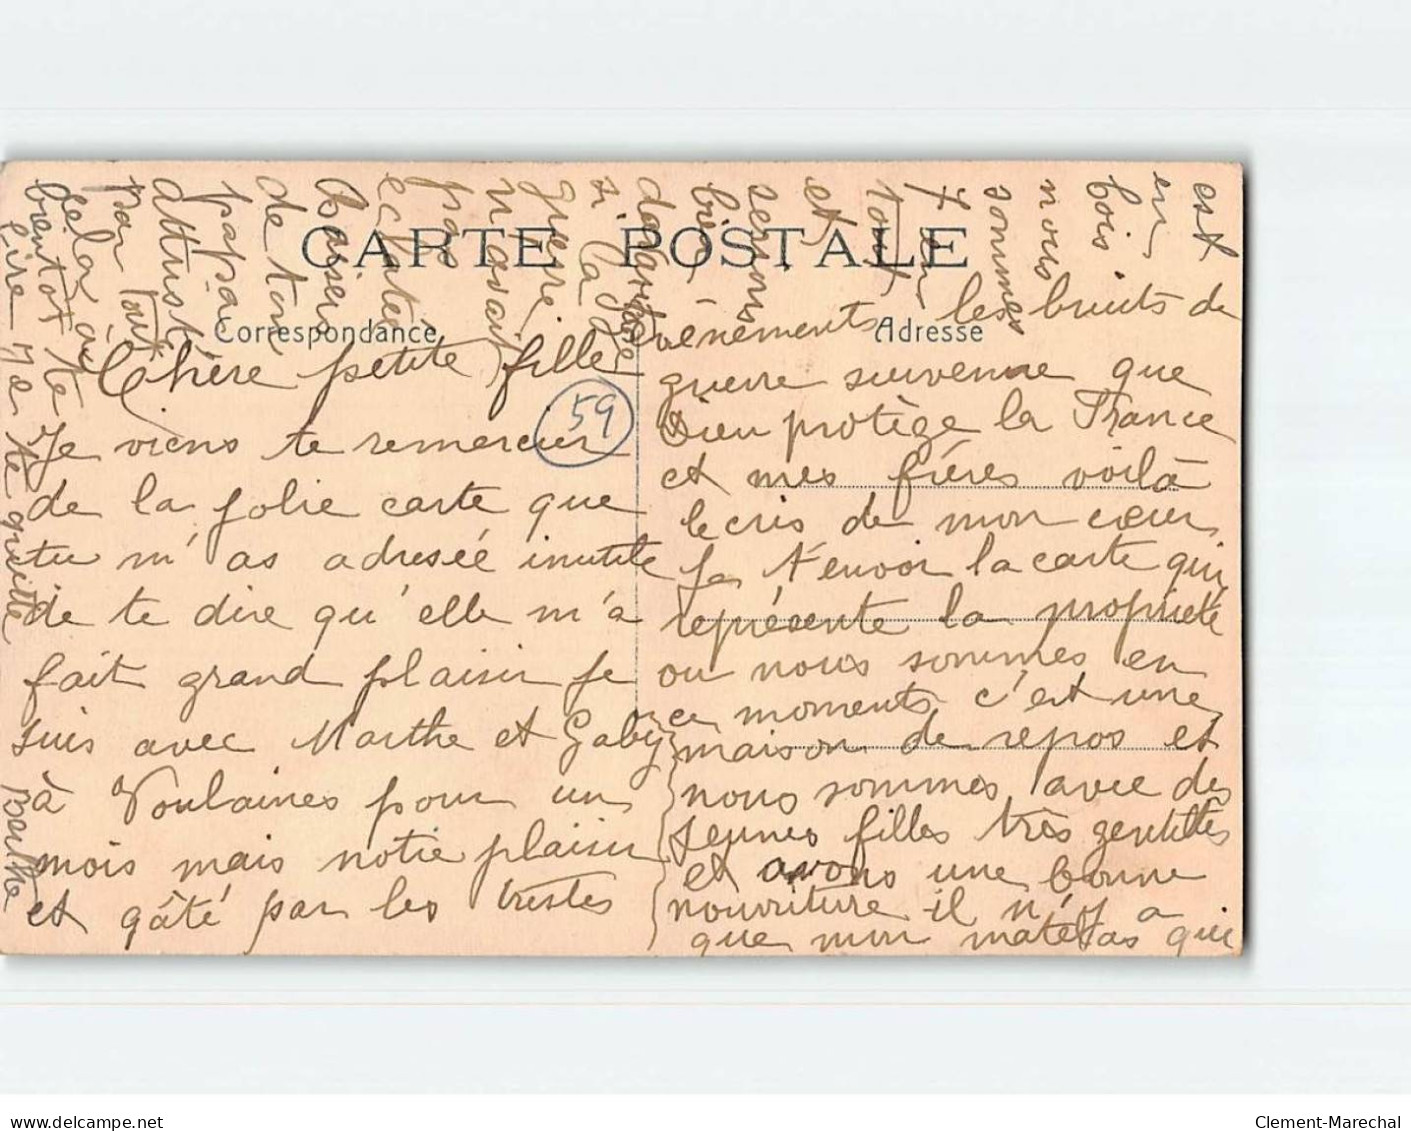 CARTE POSTALE
Correspondance
Adresse
59
Chère petite fille
Je viens te remercier
de la jolie carte que
tu m'as adreseé inutile
de te dire qu'elle m'a
fait grand plaisir je
suis avec Marthe et Gaby
à Voulaines pour un
mois mais notre plaisir
et gâté par les tristes
évènements, les bruits de
guerre survenue que
Dieu protège la France
et mes frères voilà
le cris de mon cœur
je t'envoi la carte qui
représente la propriété
ou nous sommes en
ce moments, c'est une
maison de repos et
nous sommes avec des
jeunes filles très gentilles
et avons une bonne
nourriture il n'y a
que mon matelas qui
est
en
bois
nous
sommes
7 en
tout
et
serions
bien
davantage
si la
guerre
n'avait
pas
éclatée
baisers
de ton
papa
attristé
par tout
cela
bientôt te
lire je te quitte
Berthe
Clement-Marechal
delcampe.net